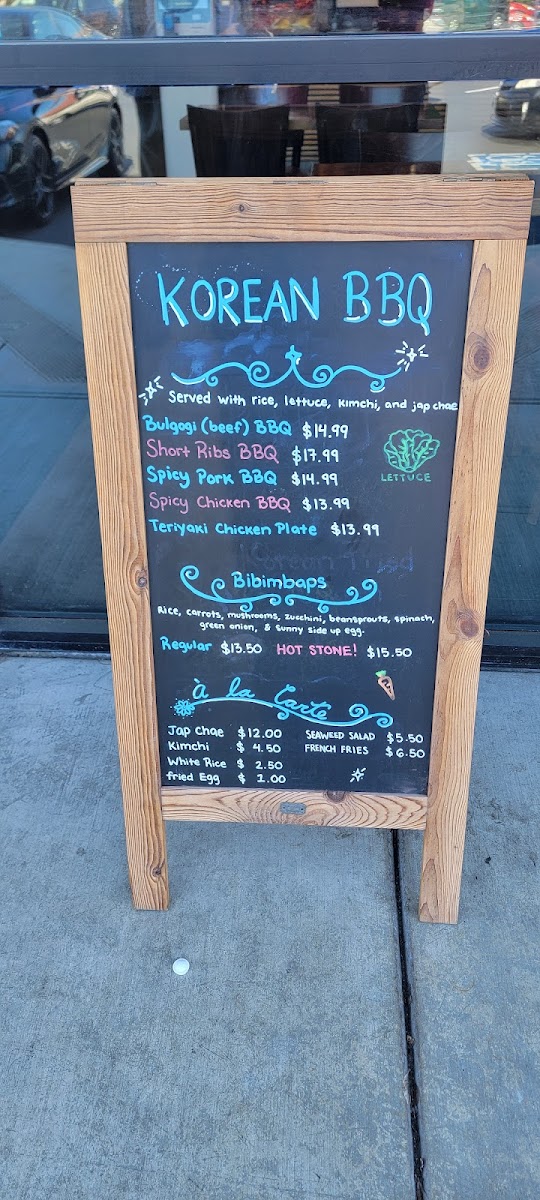 KOREAN BBQ
Served with rice, lettuce, kimchi, and jap chae
Bulgogi (beef) BBQ $14.99
Short Ribs BBQ $17.99
Spicy Pork BBQ $14.99
Spicy Chicken BBQ $13.99
Teriyaki Chicken Plate $13.99
LETTUCE
Bibimbaps
Rice, carrots, mushrooms, zucchini, beansprouts, spinach,
green onion, & sunny side up egg.
Regular $13.50 HOT STONE! $15.50
à la Carte
Jap Chae $12.00
Kimchi $ 4.50
White Rice $ 2.50
fried Egg $ 2.00
SEAWEED SALAD $5.50
FRENCH FRIES $6.50